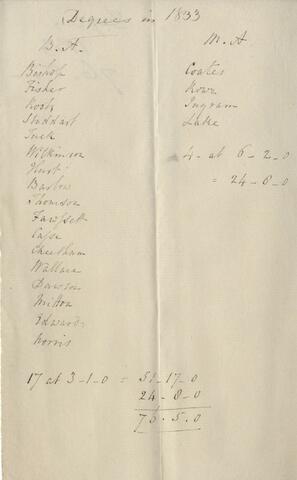 Degrees in 1833
B. A.
Bishop
Fisher
Koch
Stoddart
Tuck
Wilkinson
Hurst
Barlow
Thomson
Fawssett
Case
Cheetham
Wallace
Dawson
Milton
Edwards
Norris
17 at 3-1-0 = 51-17-0
24-8-0
76.5.0
M. A
Coates
Rowe
Ingram
Luke
4 at 6-2-0
= 24-8-0